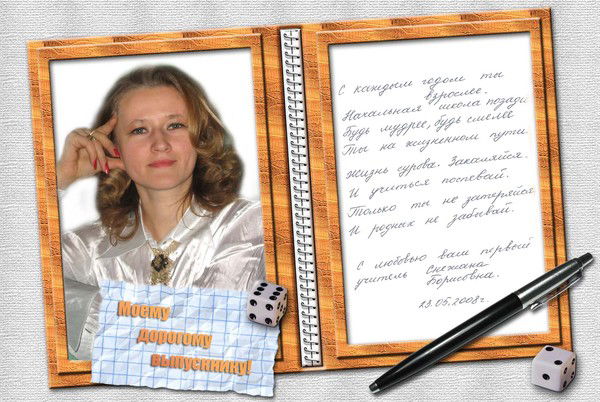 Моему
дорогому
выпускнику!
С каждым годом ты
взрослее.
Начальная школа позади
Будь мудрее, будь смелее
Ты на жизненном пути.
Жизнь сурова. Закаляйся.
И учиться поспевай.
Только ты не затеряйся
И родных не забывай.
С любовью ваш первый
учитель Снежана
Борисовна.
23.05.2008г.